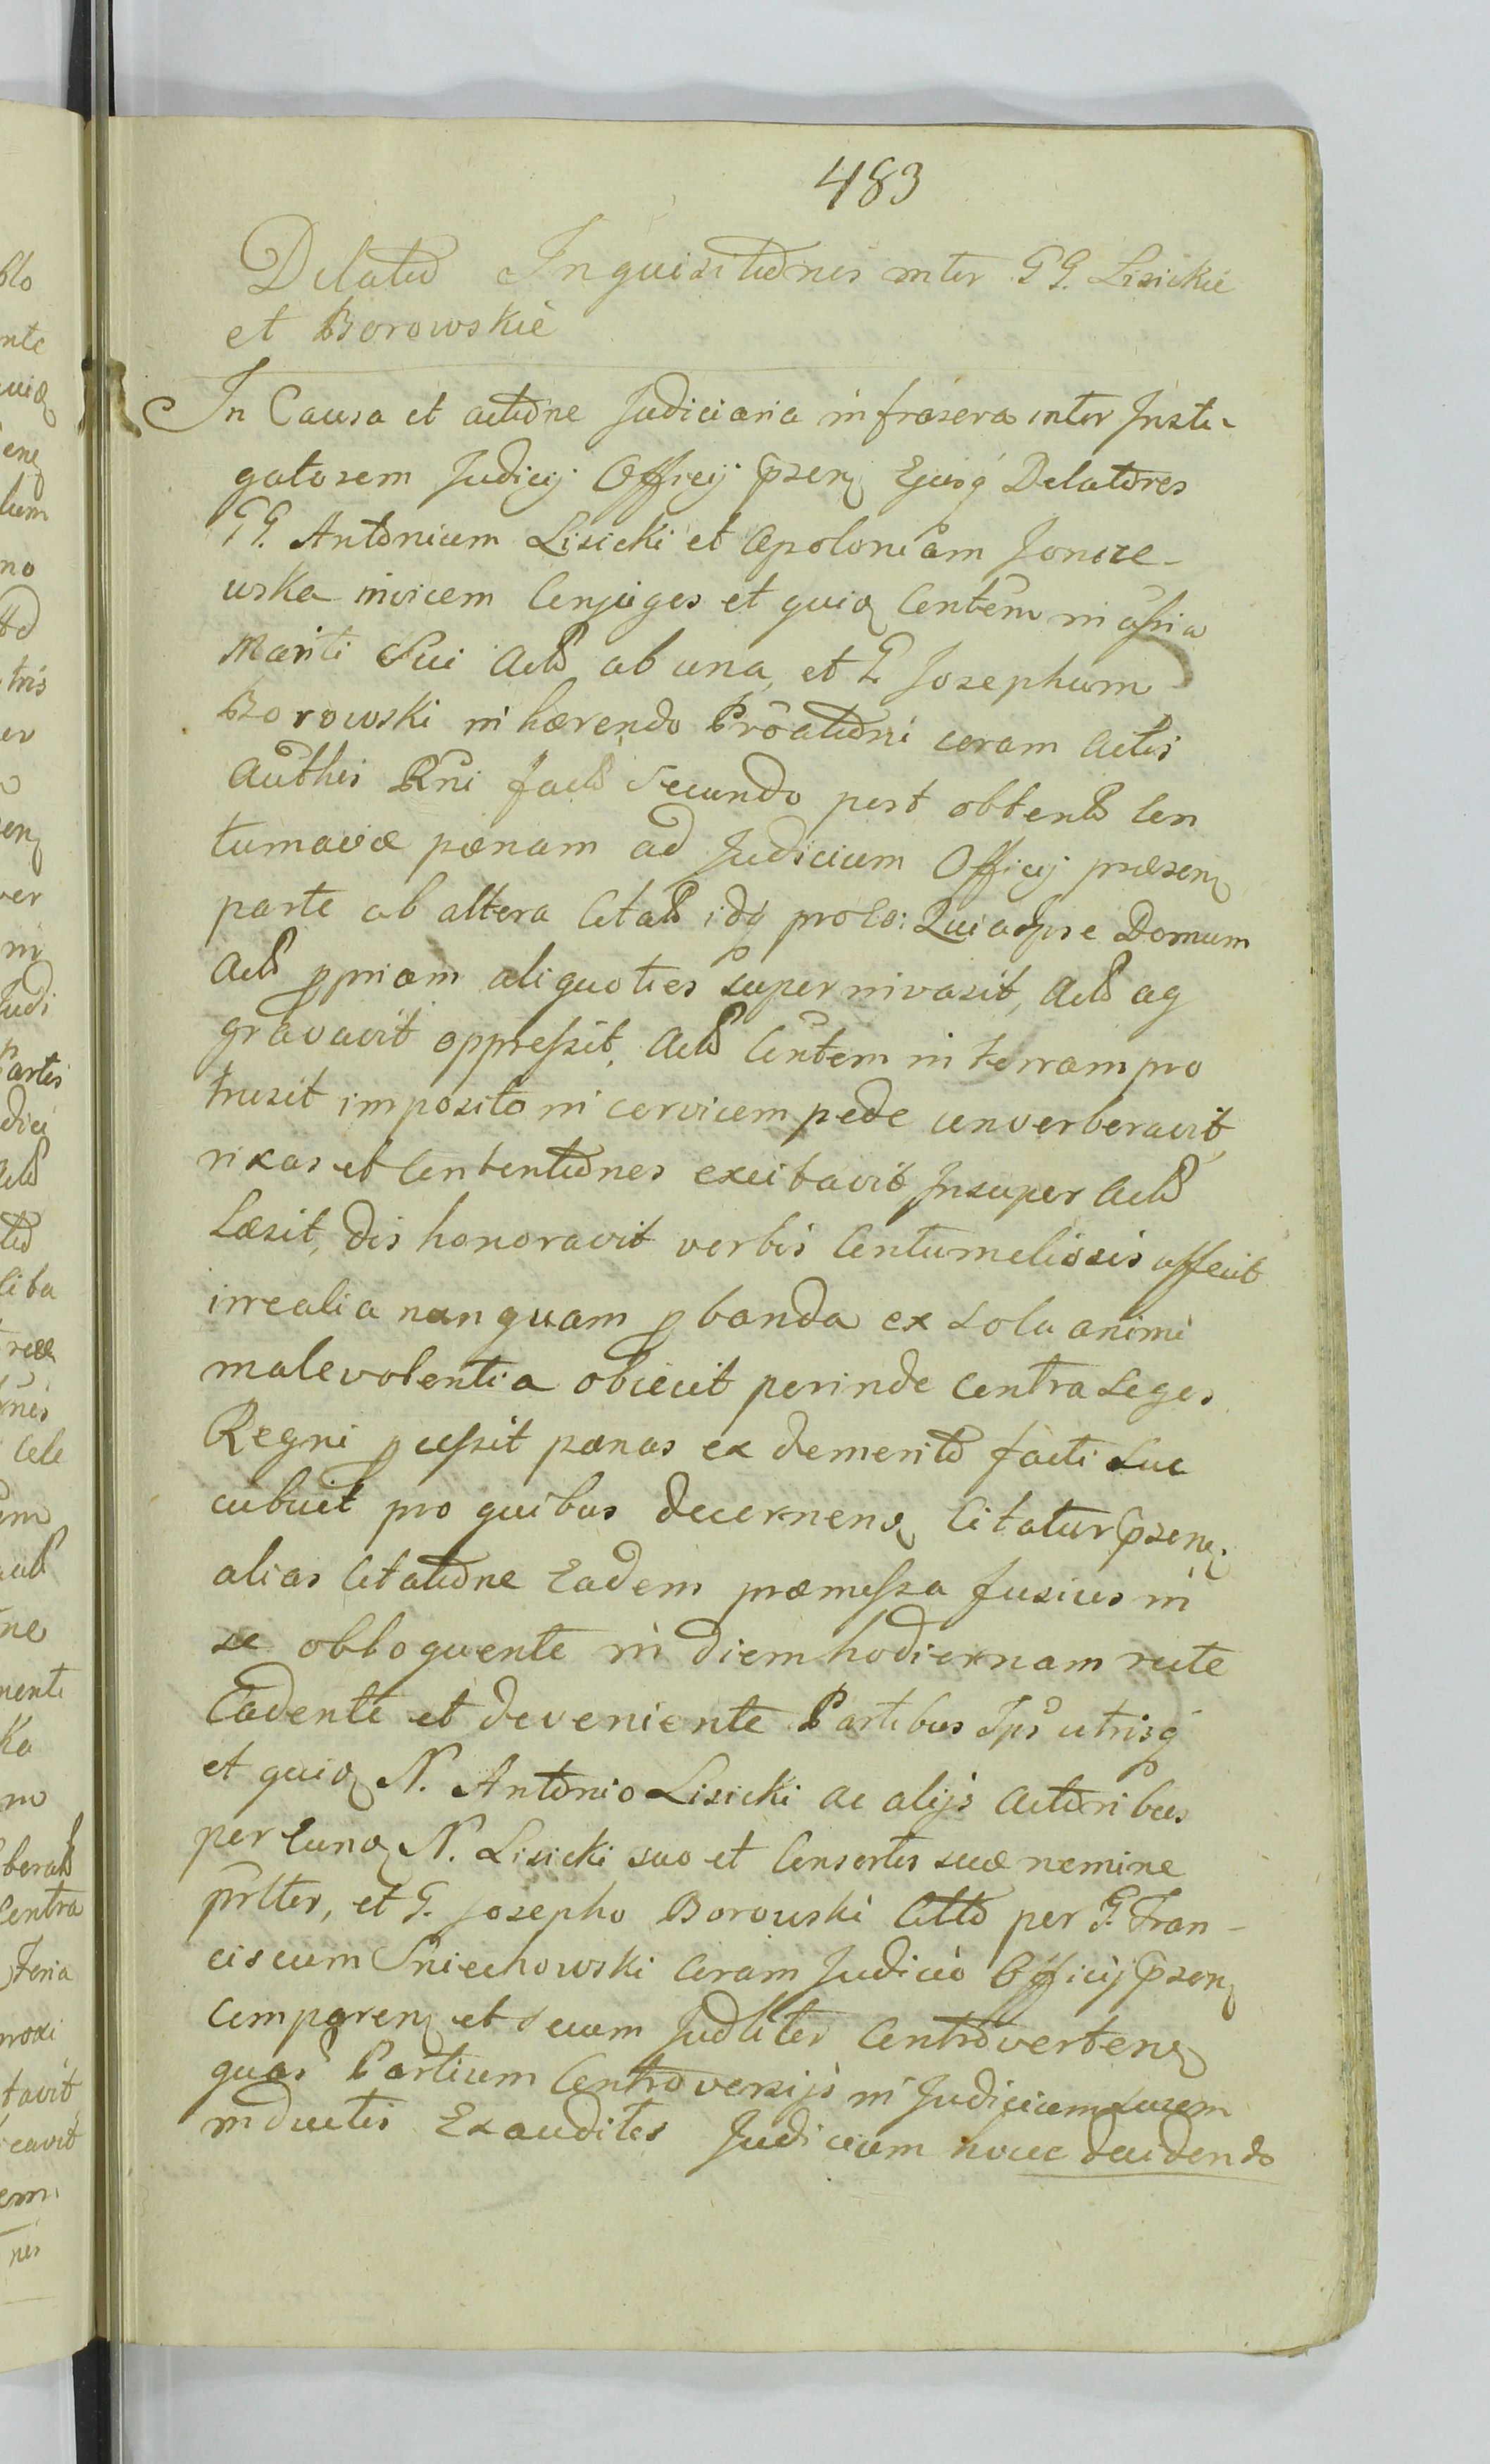 483
Delatio Inquisitionis inter GG. Lisickie
et Borowskie
In Causa et actione Judiciaria infraseras inter Insti-
gatorem Judicij Officij psen Ejusq Delatores
GG. Antonium Lisicki et Apoloniam
wska invicem Conjuges et quidem Contem in assia
Mariti Sui Acts ab una, et G Josephum
Borowski in hærendo Proationi coram Actis
Authis Rni facts Secundo post obtents Con
tumaciæ pænam ad Judicium Officij præsen
parte ab altera Citats idq pro eo: Quia Ipse Domum
Acts ppriam aliquoties superinvasit, Acts ag
gravavit oppressit, Acts Contem in terram pro
trusit imposito in cervicem pede converberavit
rixas et Contentiones excitavit Insuper Acts
Læsit, dis honoravit verbis Contumeliosis affecit
irrealia nunquam pbanda ex sola animi
malevolentia obiecit perinde Contra Leges
Regni pcessit pænas ex demerito facti Suc
cubuit pro quibus decernen Citatur psen
alias Citatione Eadem præmissa fusius in
se obloquente in diem hodiernam recte
Cadente et deveniente Partibus Ips utrisq
et quidem N. Antonio Lisicki ac alijs Actoribus
per eund N. Lisicki suo et Consortis suæ nomine
prltter, et G. Josepho Borowski Citto per G. Fran-
ciscum Sniechowski Coram Judicio Officij psen
Comparen et secum Judliter Controverten
quas Partium Controversijs in Judicium Lucem
inductis Exauditis Judicium hocce decidendo